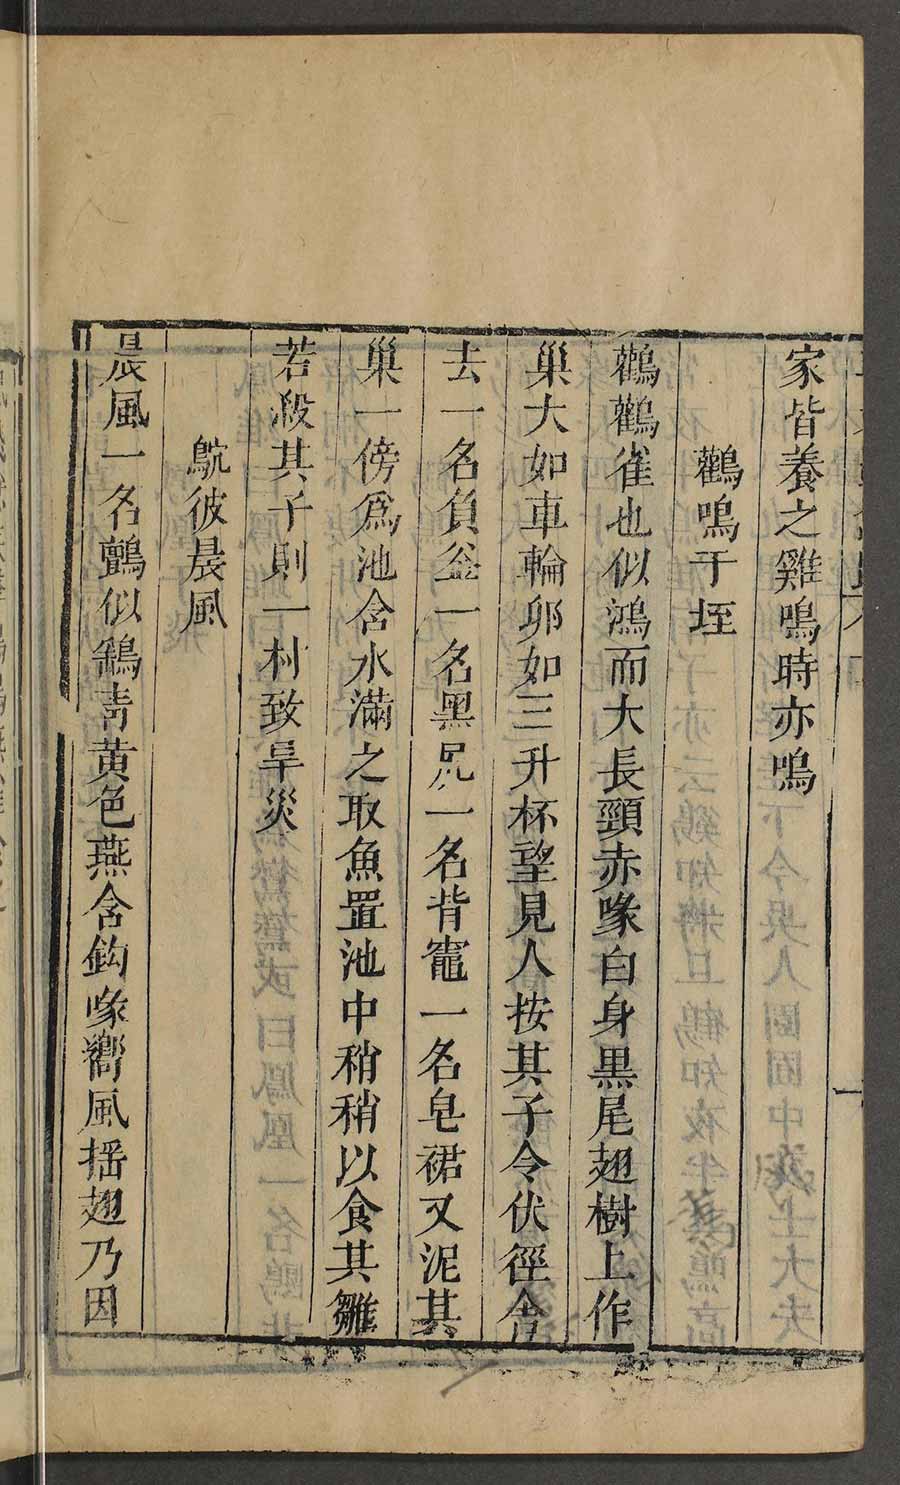 家皆養之雞鳴時亦鳴
鸛鳴于垤
鸛鸛雀也似鴻而大長頸赤喙白身黑尾翅樹上作
巢大如車輪卵如三升杯望見人按其子令伏徑舍
去一名負釜一名黑尻一名背竈一名皂裙又泥其
巢一傍爲池含水滿之取魚置池中稍稍以食其雛
若殺其子則一村致旱災
鴥彼晨風
晨風一名鸇似鷂青黄色燕含鈎喙嚮風摇翅乃因